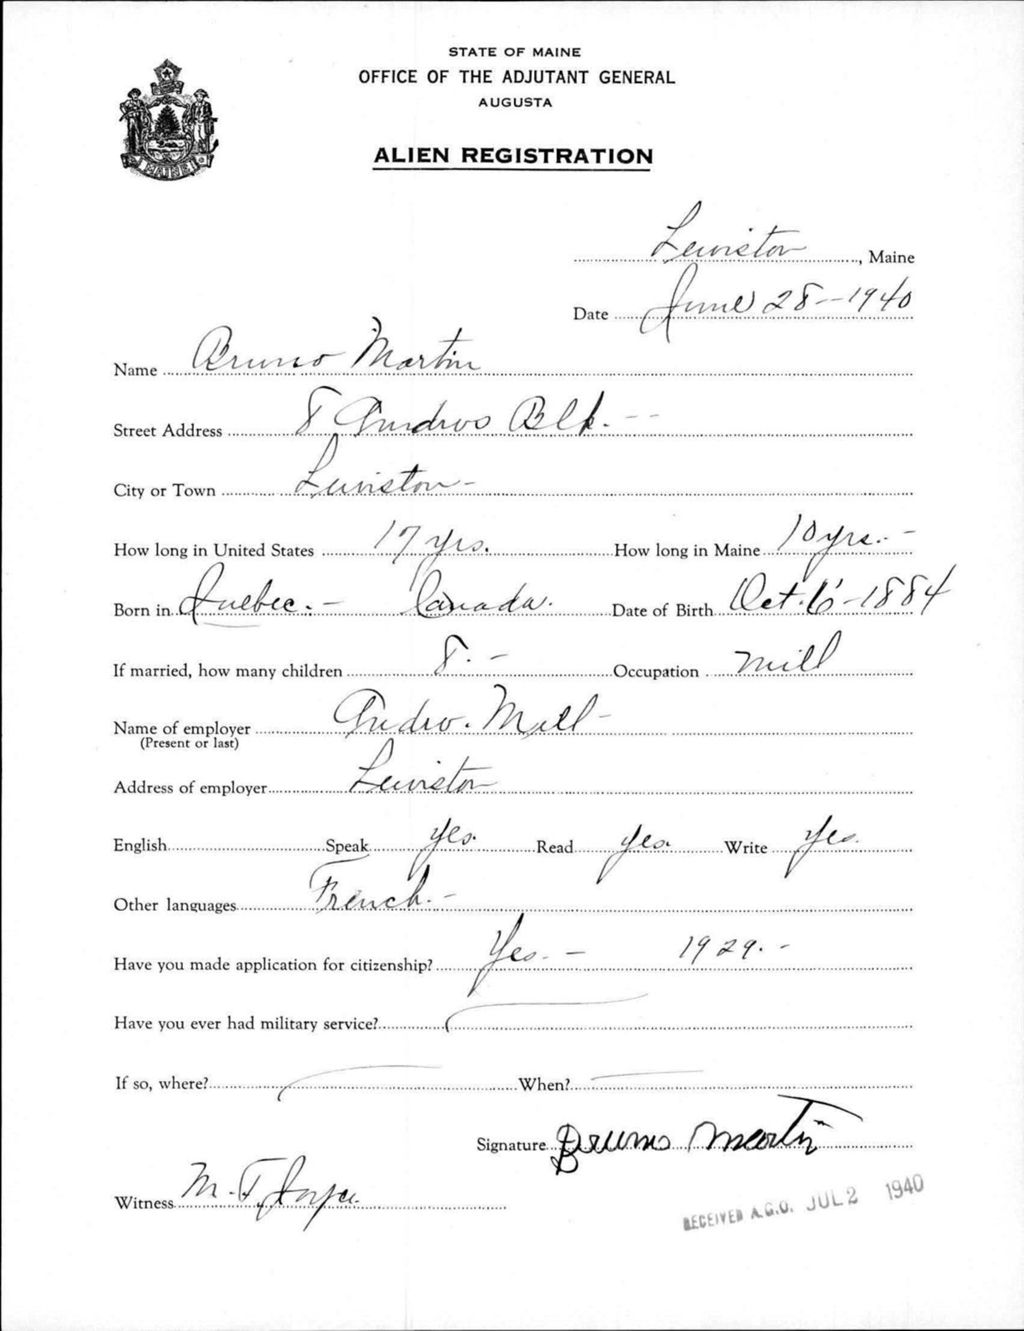 STATE OF MAINE
OFFICE OF THE ADJUTANT GENERAL
AUGUSTA
ALIEN REGISTRATION
MAINE
Lewiston, Maine
Date June 28--1940
Name Bruno Martin
Street Address 8 Andros Blk. - -
City or Town Lewiston -
How long in United States 17 yrs. How long in Maine 10 yrs. -
Born in Quebec. - Canada. Date of Birth Oct. 6 - 1884
If married, how many children 8. - Occupation mill
Name of employer Andro. Mill -
(Present or last)
Address of employer Lewiston
English Speak yes. Read yes. Write yes.
Other languages French. -
Have you made application for citizenship? Yes. - 1929. -
Have you ever had military service?
If so, where? When?
Signature Bruno Martin
Witness M. F. Joyce.
RECEIVED A.G.O. JUL 2 1940